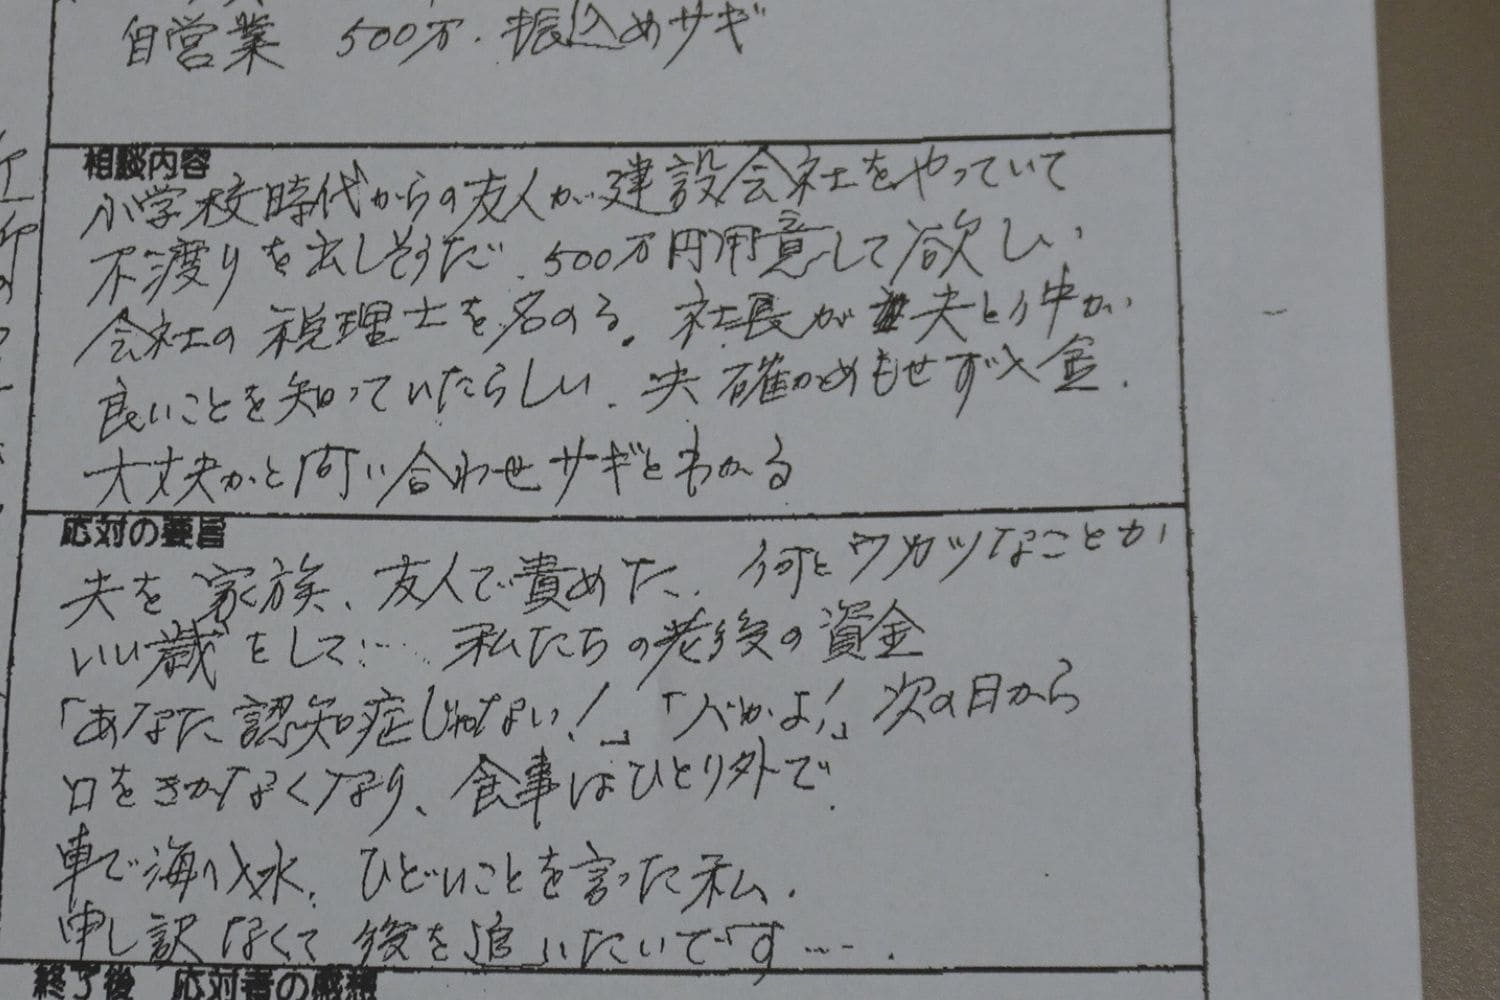 自営業 500万. 振込めサギ
相談内容
小学校時代からの友人が建設会社をやっていて
不渡りを出しそうだ. 500万円用意して欲しい
会社の税理士を名のる。社長が夫と仲が
良いことを知っていたらしい. 夫確かめもせず入金.
大丈夫かと問い合わせサギとわかる
応対の要旨
夫を家族、友人で責めた. 何とウカツなことか
いい歳をして…… 私たちの老後の資金
「あなた認知症じゃない!」「バカよ!」次の日から
口をきかなくなり、食事はひとり外で.
車で海へ入水. ひどいことを言った私.
申し訳なくて後を追いたいです…….
終了後 応対者の感想